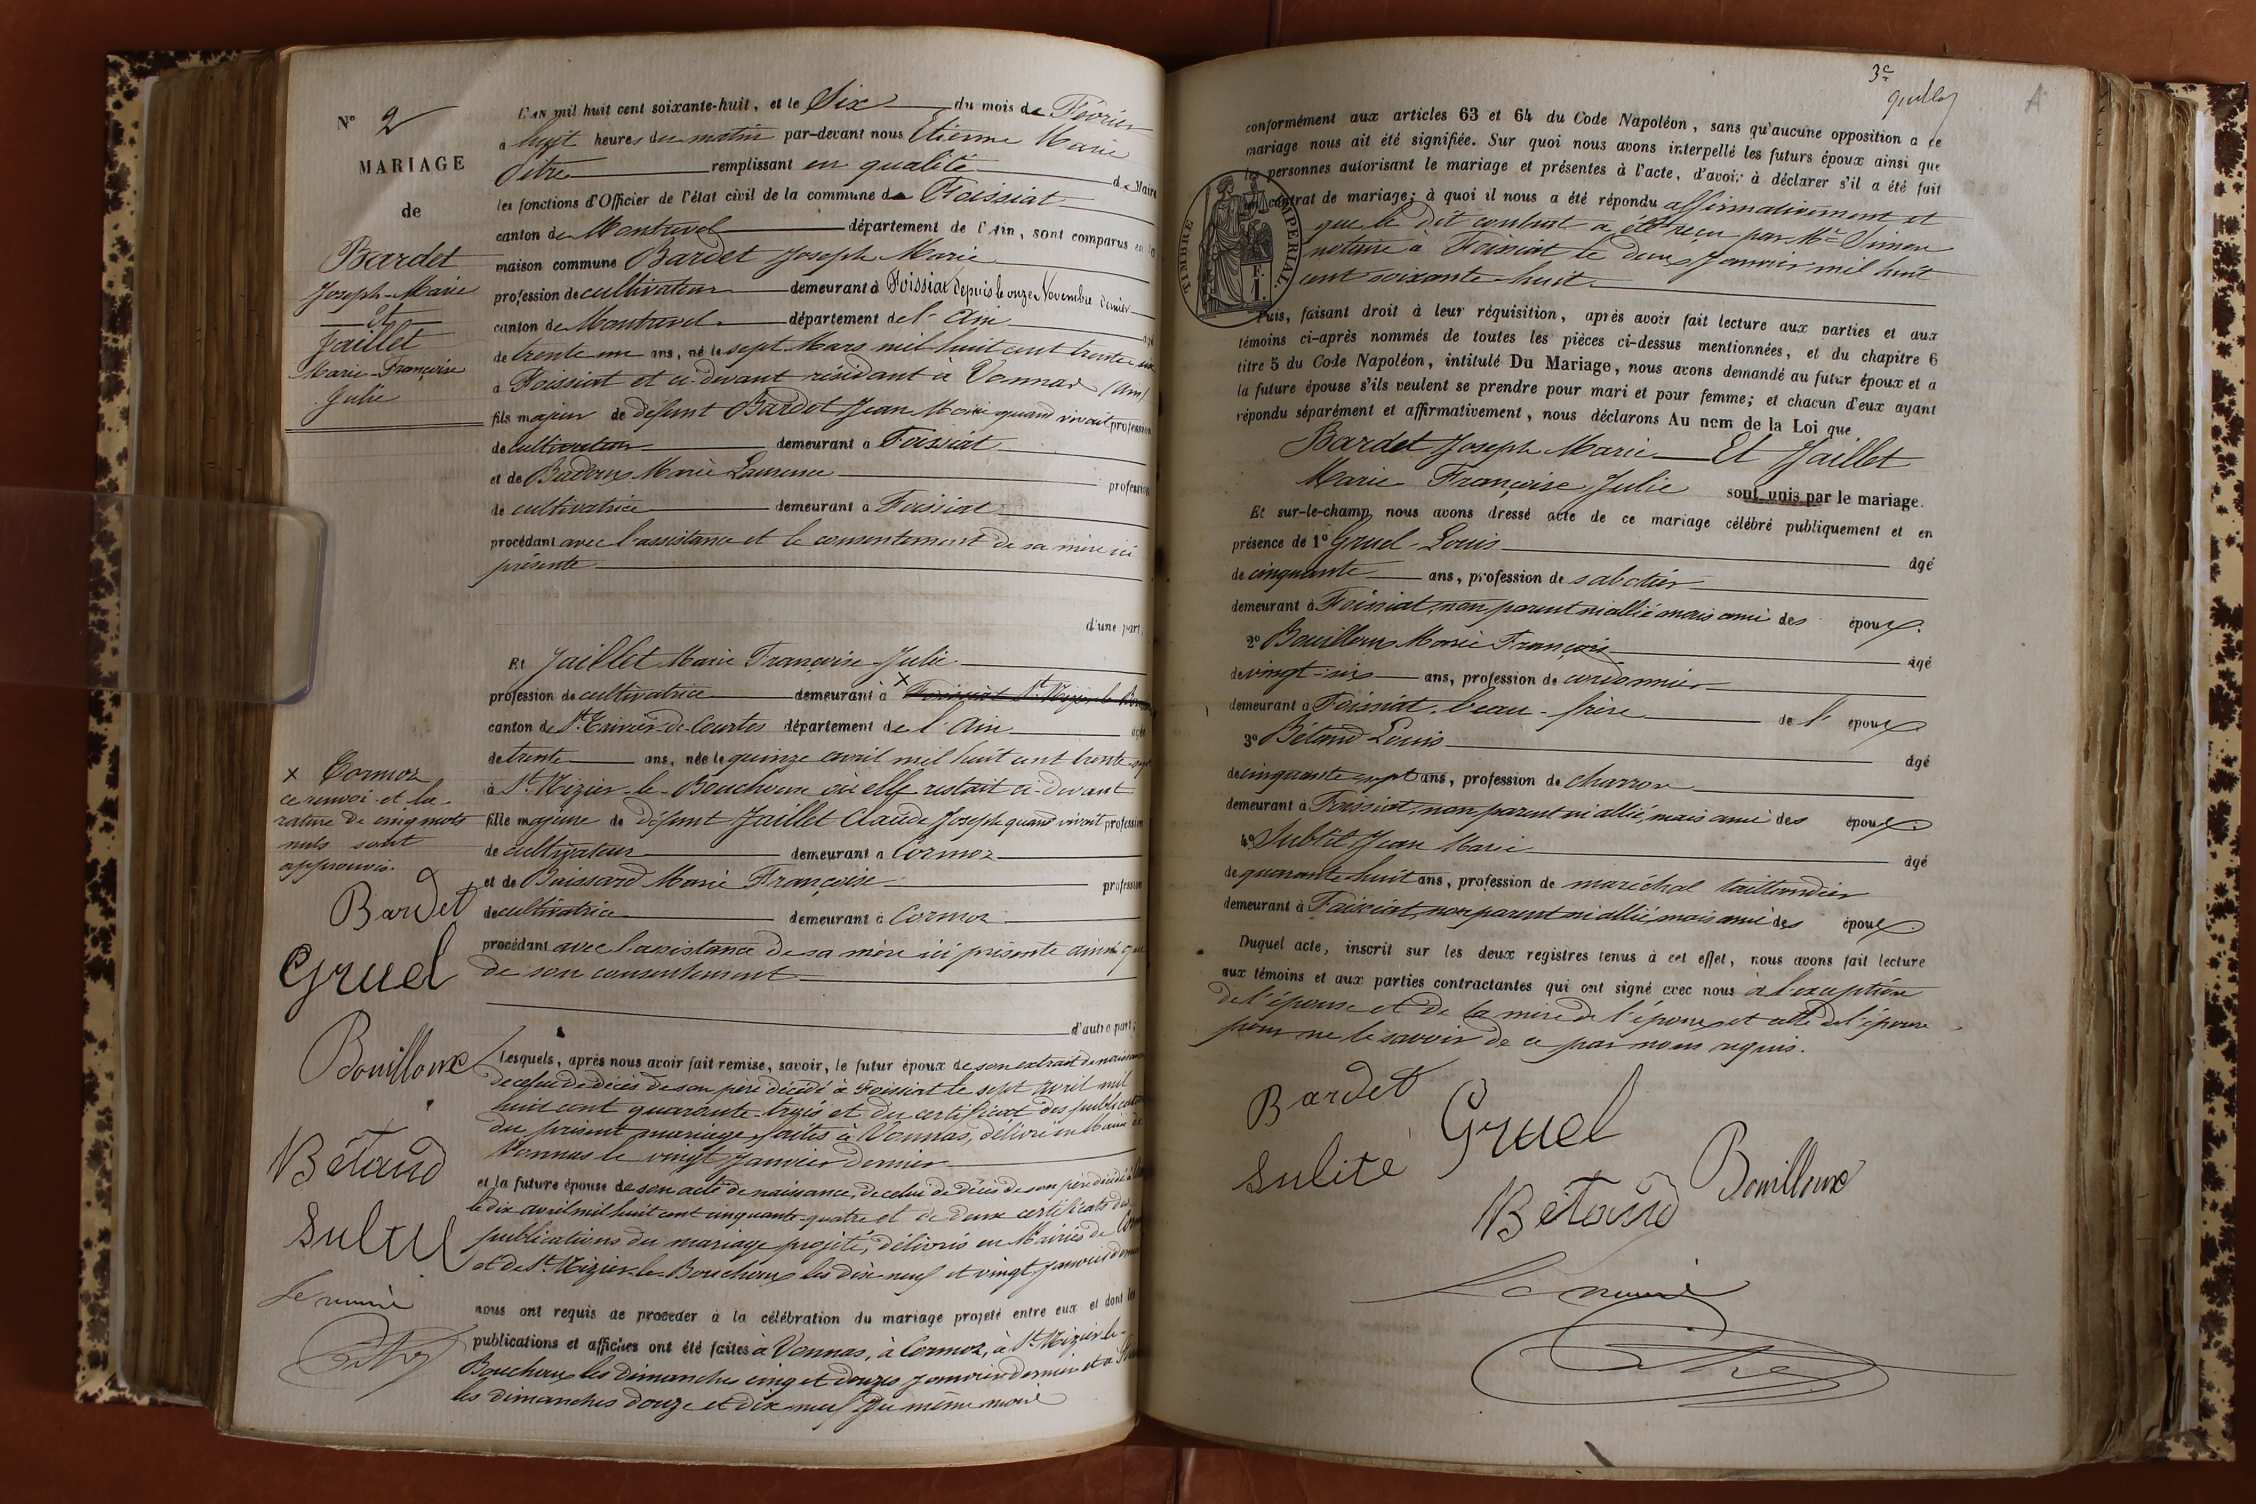 N° 2
MARIAGE
de
Bardet
Joseph-Marie
Et
Jaillet
Marie-Françoise
Julie
L'AN mil huit cent soixante-huit, et le Six du mois de Février
à huit heures du matin par-devant nous Etienne Marie
remplissant en qualité de Maire
les fonctions d'Officier de l'état civil de la commune de Foissiat
canton de Montrevel département de l'Ain, sont comparus en la
maison commune Bardet Joseph Marie
profession de cultivateur demeurant à Foissiat depuis le onze Novembre dernier
canton de Montrevel département de l'Ain âgé
de trente un ans, né le sept Mars mil huit cent trente-six
à Foissiat et ci-devant résidant à Vonnas (Ain)
fils majeur de défunt Bardet Jean Marie quand vivait profession
de cultivateur demeurant à Foissiat
et de Marie Laurence profession
de cultivatrice demeurant à Foissiat
procédant avec l'assistance et le consentement de sa mère ici
présente
d'une part;
Et Jaillet Marie Françoise Julie
profession de cultivatrice demeurant à x Foissiat St Nizier le
canton de St Trivier-de-Courtes département de l'Ain âgée
de trente ans, née le quinze avril mil huit cent trente-sept
à St Nizier-le-Bouchoux où elle restait ci-devant
fille majeure de défunt Jaillet Claude Joseph quand vivait profession
de cultivateur demeurant à Cormoz
et de Buissard Marie Françoise profession
de cultivatrice demeurant à Cormoz
procédant avec l'assistance de sa mère ici présente ainsi que
de son consentement
d'autre part;
x Cormoz
ce renvoi et la
rature de cinq mots
nuls sont
approuvés.
Bardet
Gruel
Bouilloux
Bétaud
Subtil
Le maire
Lesquels, après nous avoir fait remise, savoir, le futur époux de son extrait de naissance
de celui de décès de son père décédé à Foissiat le sept avril mil
huit cent quarante-trois et du certificat des publications
du présent mariage faites à Vonnas, délivré en Mairie de
Vonnas le vingt Janvier dernier
et la future épouse de son acte de naissance, de celui de décès de son père décédé à
le dix avril mil huit cent cinquante-quatre et de deux certificats des
publications du mariage projeté, délivrés en Mairies de
et de St Nizier-le-Bouchoux les dix-neuf et vingt janvier dernier
nous ont requis de procéder à la célébration du mariage projeté entre eux et dont les
publications et affiches ont été faites à Vonnas, à Cormoz, à St Nizier-le-
Bouchoux les dimanches cinq et douze janvier dernier et à
les dimanches douze et dix-neuf du même mois
3e
conformément aux articles 63 et 64 du Code Napoléon, sans qu'aucune opposition à ce
mariage nous ait été signifiée. Sur quoi nous avons interpellé les futurs époux ainsi que
les personnes autorisant le mariage et présentes à l'acte, d'avoir à déclarer s'il a été fait
un contrat de mariage; à quoi il nous a été répondu affirmativement et
que le dit contrat a été reçu par Me Simon
notaire à Foissiat le deux Janvier mil huit
cent soixante-huit.
TIMBRE IMPERIAL
Puis, faisant droit à leur réquisition, après avoir fait lecture aux parties et aux
témoins ci-après nommés de toutes les pièces ci-dessus mentionnées, et du chapitre 6
titre 5 du Code Napoléon, intitulé Du Mariage, nous avons demandé au futur époux et à
la future épouse s'ils veulent se prendre pour mari et pour femme; et chacun d'eux ayant
répondu séparément et affirmativement, nous déclarons Au nom de la Loi que
Bardet Joseph Marie Et Jaillet
Marie Françoise Julie sont unis par le mariage.
Et sur-le-champ, nous avons dressé acte de ce mariage célébré publiquement et en
présence de 1° Gruel Louis âgé
de cinquante ans, profession de sabotier
demeurant à Foissiat, non parent ni allié mais ami des époux.
2° Bouilloux Marie François âgé
de vingt-six ans, profession de cordonnier
demeurant à Foissiat, beau-frère de l' époux
3° Bétaud Louis âgé
de cinquante sept ans, profession de charron
demeurant à Foissiat, non parent ni allié, mais ami des époux.
4° Subtil Jean Marie âgé
de quarante huit ans, profession de maréchal taillandier
demeurant à Foissiat, non parent ni allié, mais ami des époux
Duquel acte, inscrit sur les deux registres tenus à cet effet, nous avons fait lecture
aux témoins et aux parties contractantes qui ont signé avec nous à l'exception
de l'épouse et de la mère de l'époux et celle de l'épouse
pour ne le savoir de ce par nous requis.
Bardet
Gruel
Subtil
Bouilloux
Bétaud
Le maire